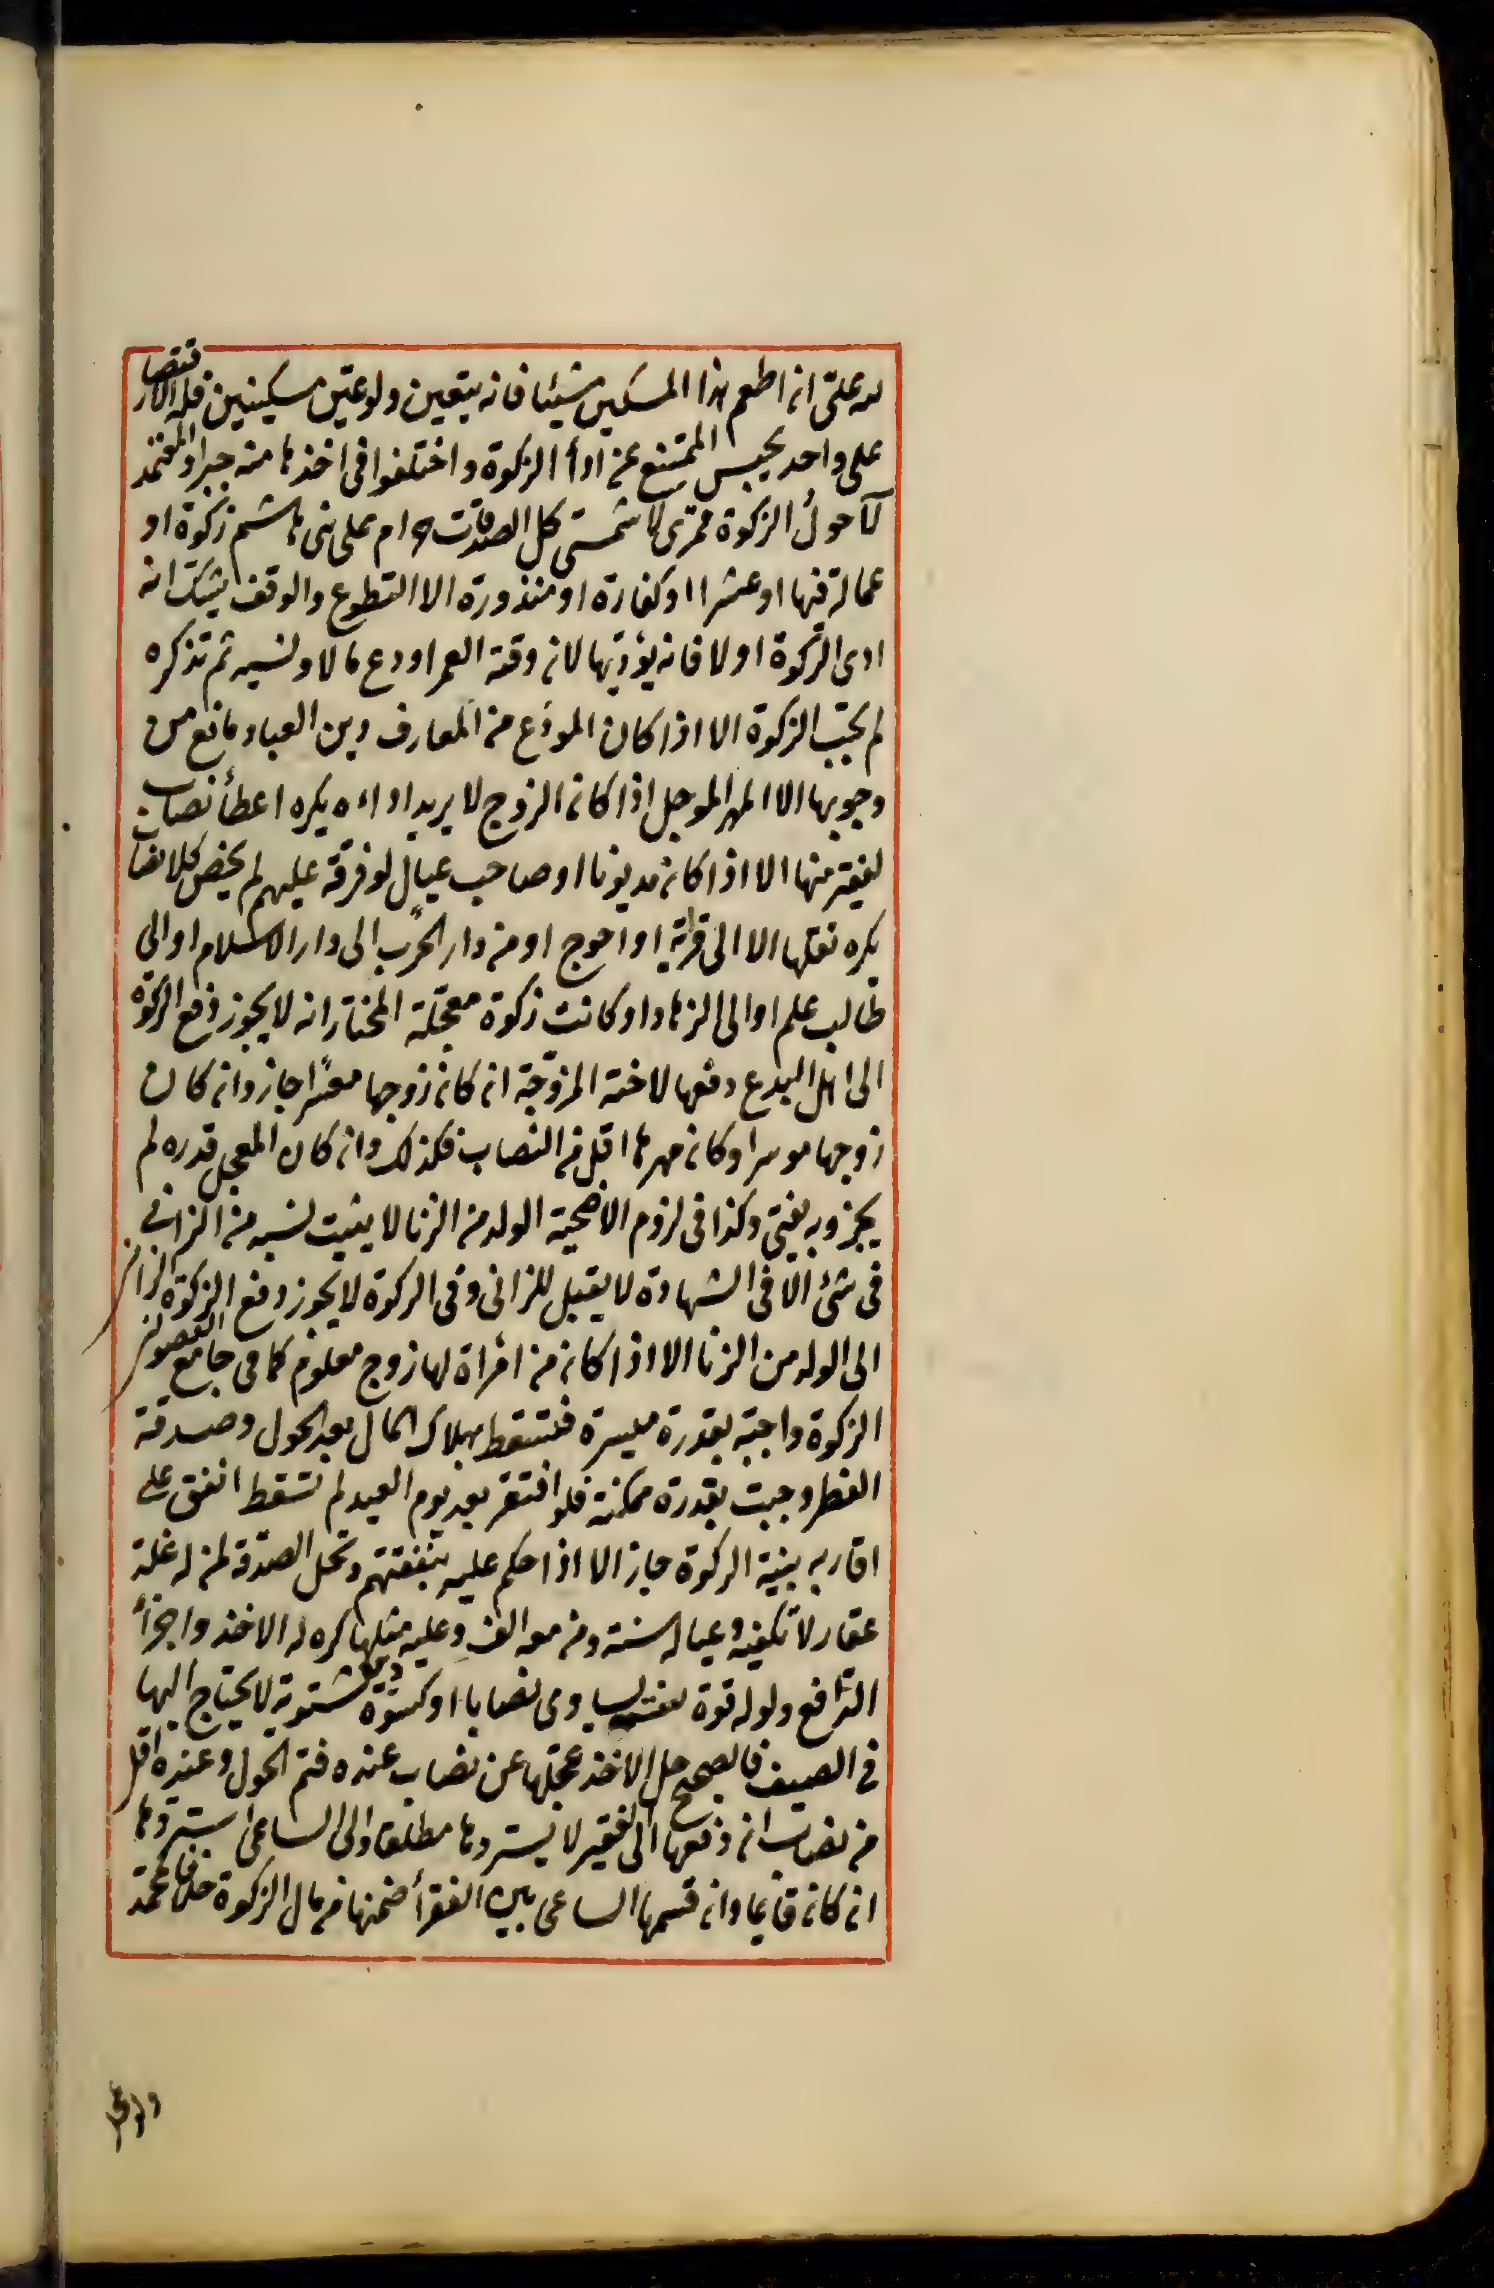 لله علىّ ان اطعم هذا المسكين شيئا فانه يتعين ولو عيّن مسكينين فله الاقتصار
على واحد يحبس الممتنع عن اداء الزكوة واختلفوا فى اخذها منه جبرا والمعتمد
لا حول الزكوة قمرى لا شمسى كل الصدقات حرام على بنى هاشم زكوة او
عمالة فيها او عشرا او كفارة او منذورة الا التطوع والوقف يشك انه
ادى الزكوة او لا فانه يؤديها لان وقته العمر اودع مالا ونسيه ثم تذكره
لم تجب الزكوة الا اذا كان المودع من المعارف دين العباد مانع من
وجوبها الا المهر المؤجل اذا كان الزوج لا يريد اداءه يكره اعطاء نصاب
لفقير منها الا اذا كان مديونا او صاحب عيال لو فرقه عليهم لم يخص كلا نصاب
يكره نقلها الا الى قرابة او احوج او من دار الحرب الى دار الاسلام او الى
طالب علم او الى الزهاد او كانت زكوة معجّلة المختار انه لا يجوز دفع الزكوة
الى اهل البدع دفعها لاخته المزوّجة ان كان زوجها معسرا جاز وان كان
زوجها موسرا وكان مهرها اقل من النصاب فكذلك وان كان المعجل قدره لم
يجز وبه يفتى وكذا فى لزوم الاضحية الولد من الزنا لا يثبت نسبه من الزانى
فى شئ الا فى الشهادة لا يقبل للزانى وفى الزكوة لا يجوز دفع الزكوة الزانى
الى الولد من الزنا الا اذا كان من امرأة لها زوج معلوم كما فى جامع الفصولين
الزكوة واجبة بقدرة ميسرة فتسقط بهلاك المال بعد الحول وصدقة
الفطر وجبت بقدرة ممكنة فلو افتقر بعد يوم العيد لم تسقط انفق على
اقاربه بنية الزكوة جاز الا اذا حكم عليه بنفقتهم وتحل الصدقة لمن له غلة
عقار لا تكفيه وعياله سنة ومن معه الف وعليه مثلها كره له الاخذ واجزأ
الدافع ولو له قوة سنة يساوى نصابا او كسوة شتوية لا يحتاج اليها
فى الصيف فالصحيح حل الاخذ عجلها عن نصاب عنده فتم الحول وعنده اقل
من نصاب ان دفعها الى الفقير لا يستردها مطلقا والى الساعى استردها
ان كان قائما وان قسمها الساعى بين الفقراء ضمنها من مال الزكوة خلافا لمحمد